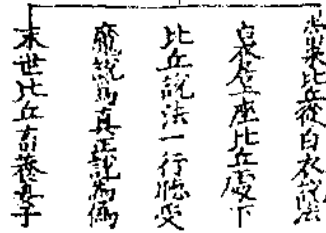 當來比丘從白衣說法
白衣上座比丘處下
比丘說法一行聽受
魔說為真正說為偽
末世比丘畜養妻子